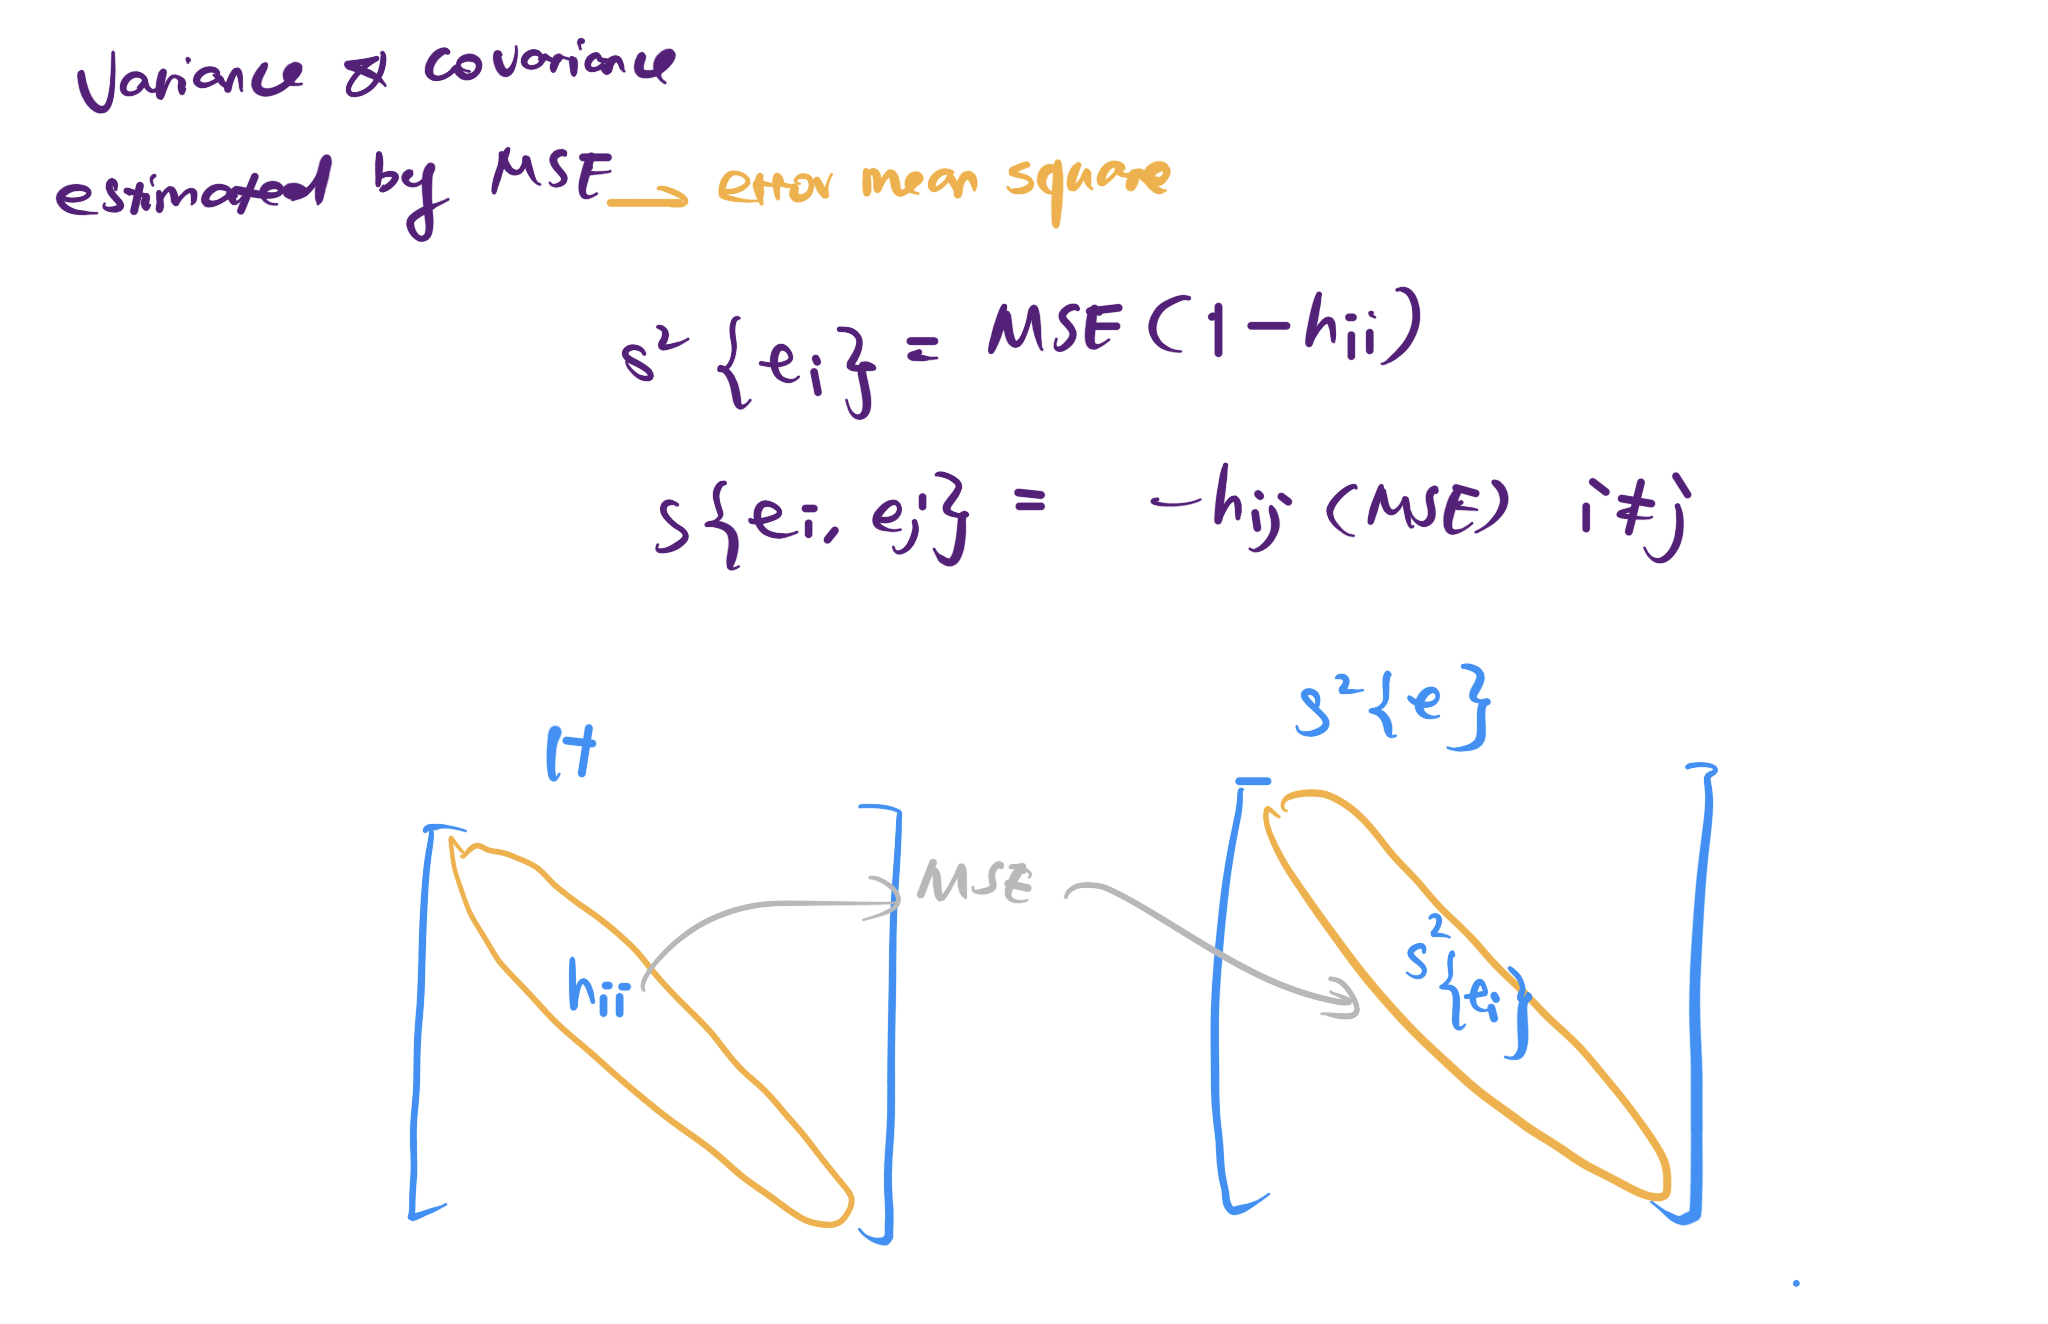 Variance & covariance
estimated by MSE → error mean square
s² {eᵢ} = MSE (1 − hᵢᵢ)
s{eᵢ, eⱼ} = −hᵢⱼ (MSE) i ≠ j
H
s²{e}
hᵢᵢ
MSE
s²{eᵢ}